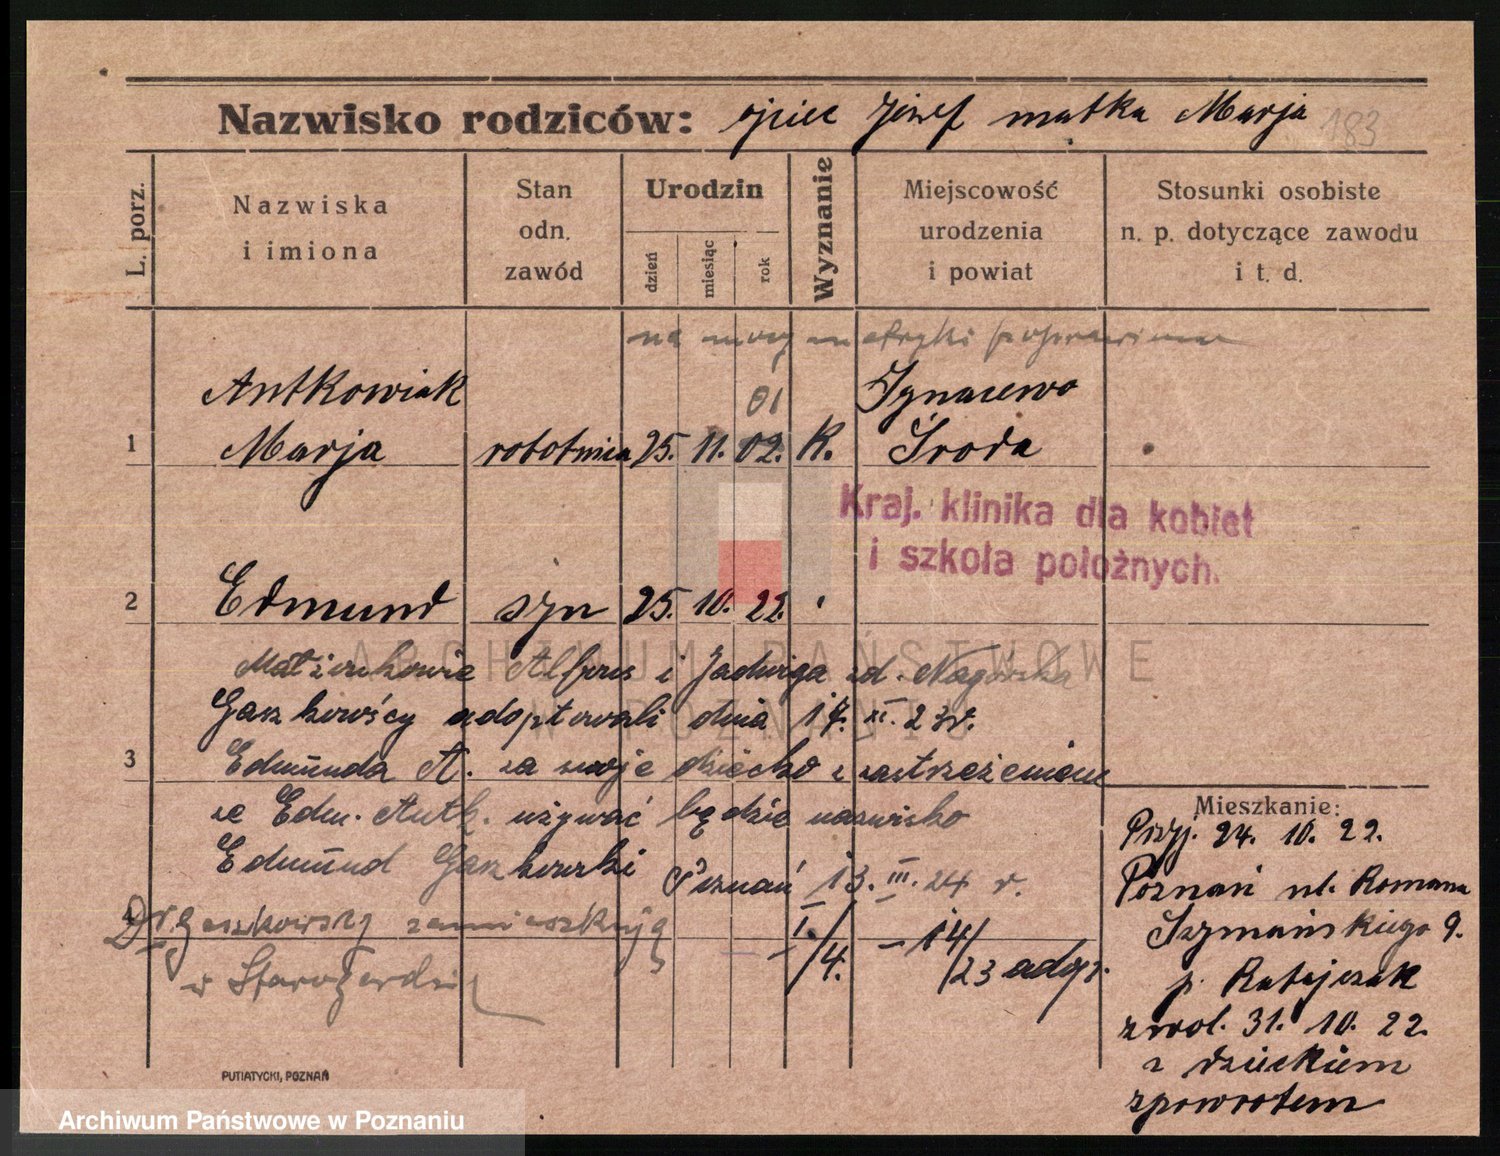 Nazwisko rodziców: ojciec Józef matka Marja 183
L. porz.
Nazwiska
i imiona
Stan
odn.
zawód
Urodzin
dzień
miesiąc
rok
Wyznanie
Miejscowość
urodzenia
i powiat
Stosunki osobiste
n. p. dotyczące zawodu
i t. d.
na mocy metryki poprawiono
Antkowiak 01 Ignacewo
1 Marja robotnica 25. 11. 02. K. Środa
Kraj. klinika dla kobiet
i szkoła położnych.
2 Edmund syn 25. 10. 22.
Małżonkowie Alfons i Jadwiga zd. Nagórska
Gaszkowścy adoptowali dnia 17. XI. 23 r.
3 Edmunda A. za swoje dziecko z zastrzeżeniem
że Edm. Antk. używać będzie nazwisko
Edmund Gaszkowski Poznań 13. III. 24 r.
Gaszkowscy zamieszkują
w Starożerdzi
I./4. – 14/23
Mieszkanie:
Przyj. 24. 10. 22.
Poznań ul. Romana
Szymańskiego 9.
p. Ratajczak
zwol. 31. 10. 22.
z dzieckiem
zpowrotem
PUTIATYCKI, POZNAŃ
ARCHIWUM PAŃSTWOWE
W POZNANIU
Archiwum Państwowe w Poznaniu